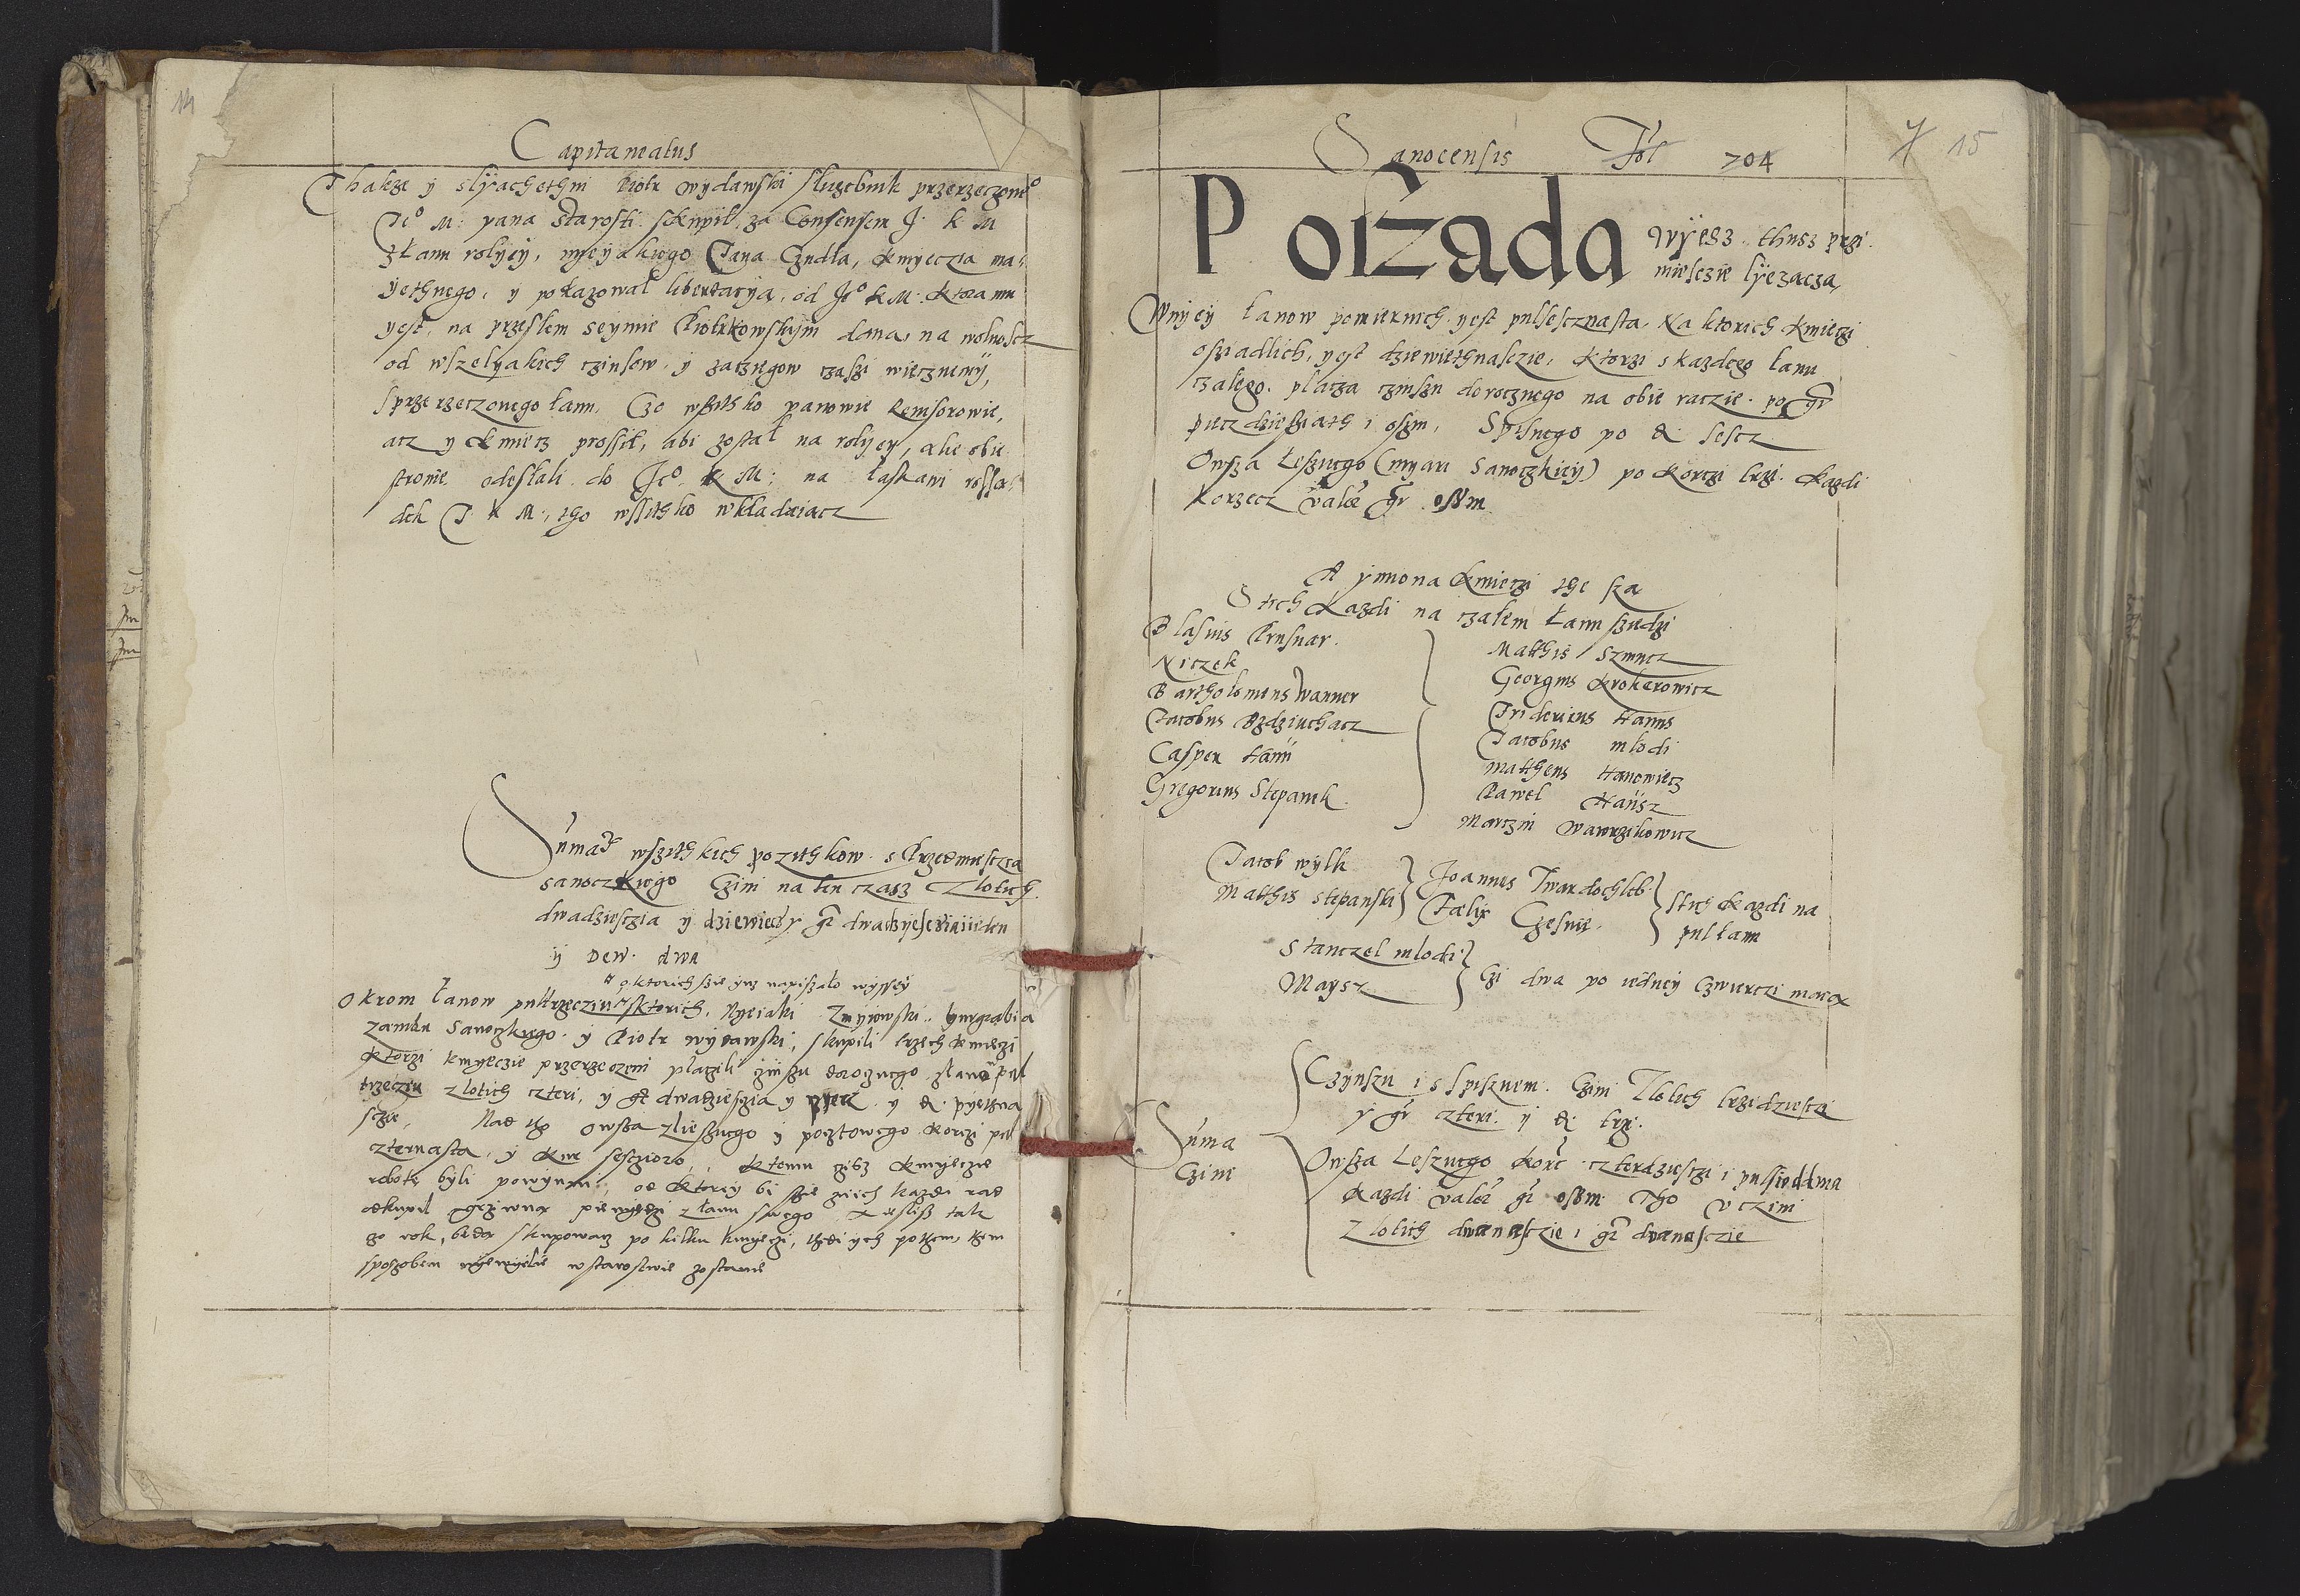 14
Capitaneatus
Thakze y slyachethni Piotr wydawski sluzebnik przerzeczone°
Je° M pana starosti skupił za Consensem J. k M
złanu rolyey, nyeyakiego Jana Czudla, kmyeczia ma-
yethnego, y pokazował libertacyą, od Je° k M. ktora mu
yest, na przeslem seymie Piotrkowskym dana, na wolnoscz
od wszelyakich czinsow. y zaczyągow czaszi wiecznemy,
sprzerzeczonego łanu, Czo wszithko panowie Revisorowie,
acz y kmiecz prossił, abi został na rolyey, alie obie
stronie odesłali do Je° k M: na łaskawi rossa-
dek J k M, tho wssithko wkładaiacz
Summa wszithkich pozithkow s Przedmiesczia
sanoczkiego Czini na ten czasz Złotich
dwadziesczia y dziewiecz gr dwadzyesczia yeden
y Den. dwa
o ktorich szie yvz napiszało wyssey
Okrom łanow pułtrzecziu sktorich, Nyeiaki Zmyiowski burgrabia
zamku Sanoczkiego y Piotr wydawski, skupili trzech kmieczi
ktorzi kmyeczie przerzeczeni płaczili czinszu doroczneго złanow pul
trzeczia złotich czteri, y gr dwadziescia y pyecz y d. pyethna
sczie, Nad tho owsa zlieszneго y pocztowego korczi pul
czternasta, y kur sesczioro, ktemu czisz kmyeczie
robote byli powynni, od ktorey bi szie znich kazdi rad
odkupił grziwna pienyedzi złanu swego A iesliss tak
co rok beda skupowacz po kilku kmyeczi, thedi ych pothem them
sposzobem nyewyele w starostwie zostanie
Sanocensis Fol 704
15
Porzada wyesz thusz przi
miesczie lyezacza,
Wnyey łanow pomiernich yest pulsescznasta, Na ktorich kmieczi
osziadlich, yest dziewiethnasczie, ktorzi s kazdego łanu
czalego, placza czinszu doroczneго na obie raczie po gr
pieczdziesziath i oszm, Spisnego po d. sescz
Owsza Leszneго (myari Sanoczkiey) po korczi trzi. kazdi
korzecz valet gr ossm
A ymiona kmieczi the sza
S tich kazdi na czałem Łanu szedzi
Blasius Prusnar
Niczek
Bartholomeus Wanner
Jacobus Bzdziuchacz
Casper Hanii
Gregorius Stepanik
Mathis Szmucz
Georgius Krokerowicz
Fridericus Hanus
Jacobus młodi
Mattheus Hanowicz
Pawel Hanisz
Marczin Wawrzikowicz
Jacob wylk
Matthis stepanski
Joannes Twardochleb
Fælix Czesnie
stich kazdi na
pul łanu
Stanczel mlodi
Maysz
Czi dwa po iedney Czwierczi maia
Suma
Czini
Czynszu i s spisznem. Czini Zlotich trzidziesczi
y gr czteri y d. trzi.
Owsza Leszneго korc czterdziesczi i pulsiodma
kazdi valet gr ossm Tho Vczini
Zlotich dwanasczie i gr dwanasczie